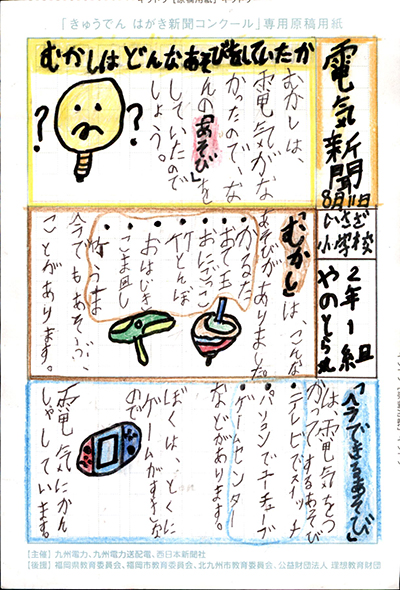 「きゅうでん はがき新聞コンクール」専用原稿用紙
電気新聞
8月11日
いさざ
小学校
2年1組
やのとら丸
むかしはどんなあそびをしていたか
むかしは、
電気がな
かったので、な
んの「あそび」を
していたので
しょう。
?
?
「むかし」は、こんな
あそびがありました。
・かるた
・おて玉
・おにごっこ
・竹とんぼ
・おはじき
・こま回し
・竹うま
今でもあそぶ、
ことがあります。
「今できるあそび」
は、電気をつ
かってするあそび
・テレビでスイッチ
・パソコンでチューブ
・ゲームセンター
などがあります。
ぼくは、とくに
ゲームがすきな
ので
電気にかん
しゃしています。
【主催】九州電力、九州電力送配電、西日本新聞社
【後援】福岡県教育委員会、福岡市教育委員会、北九州市教育委員会、公益財団法人 理想教育財団